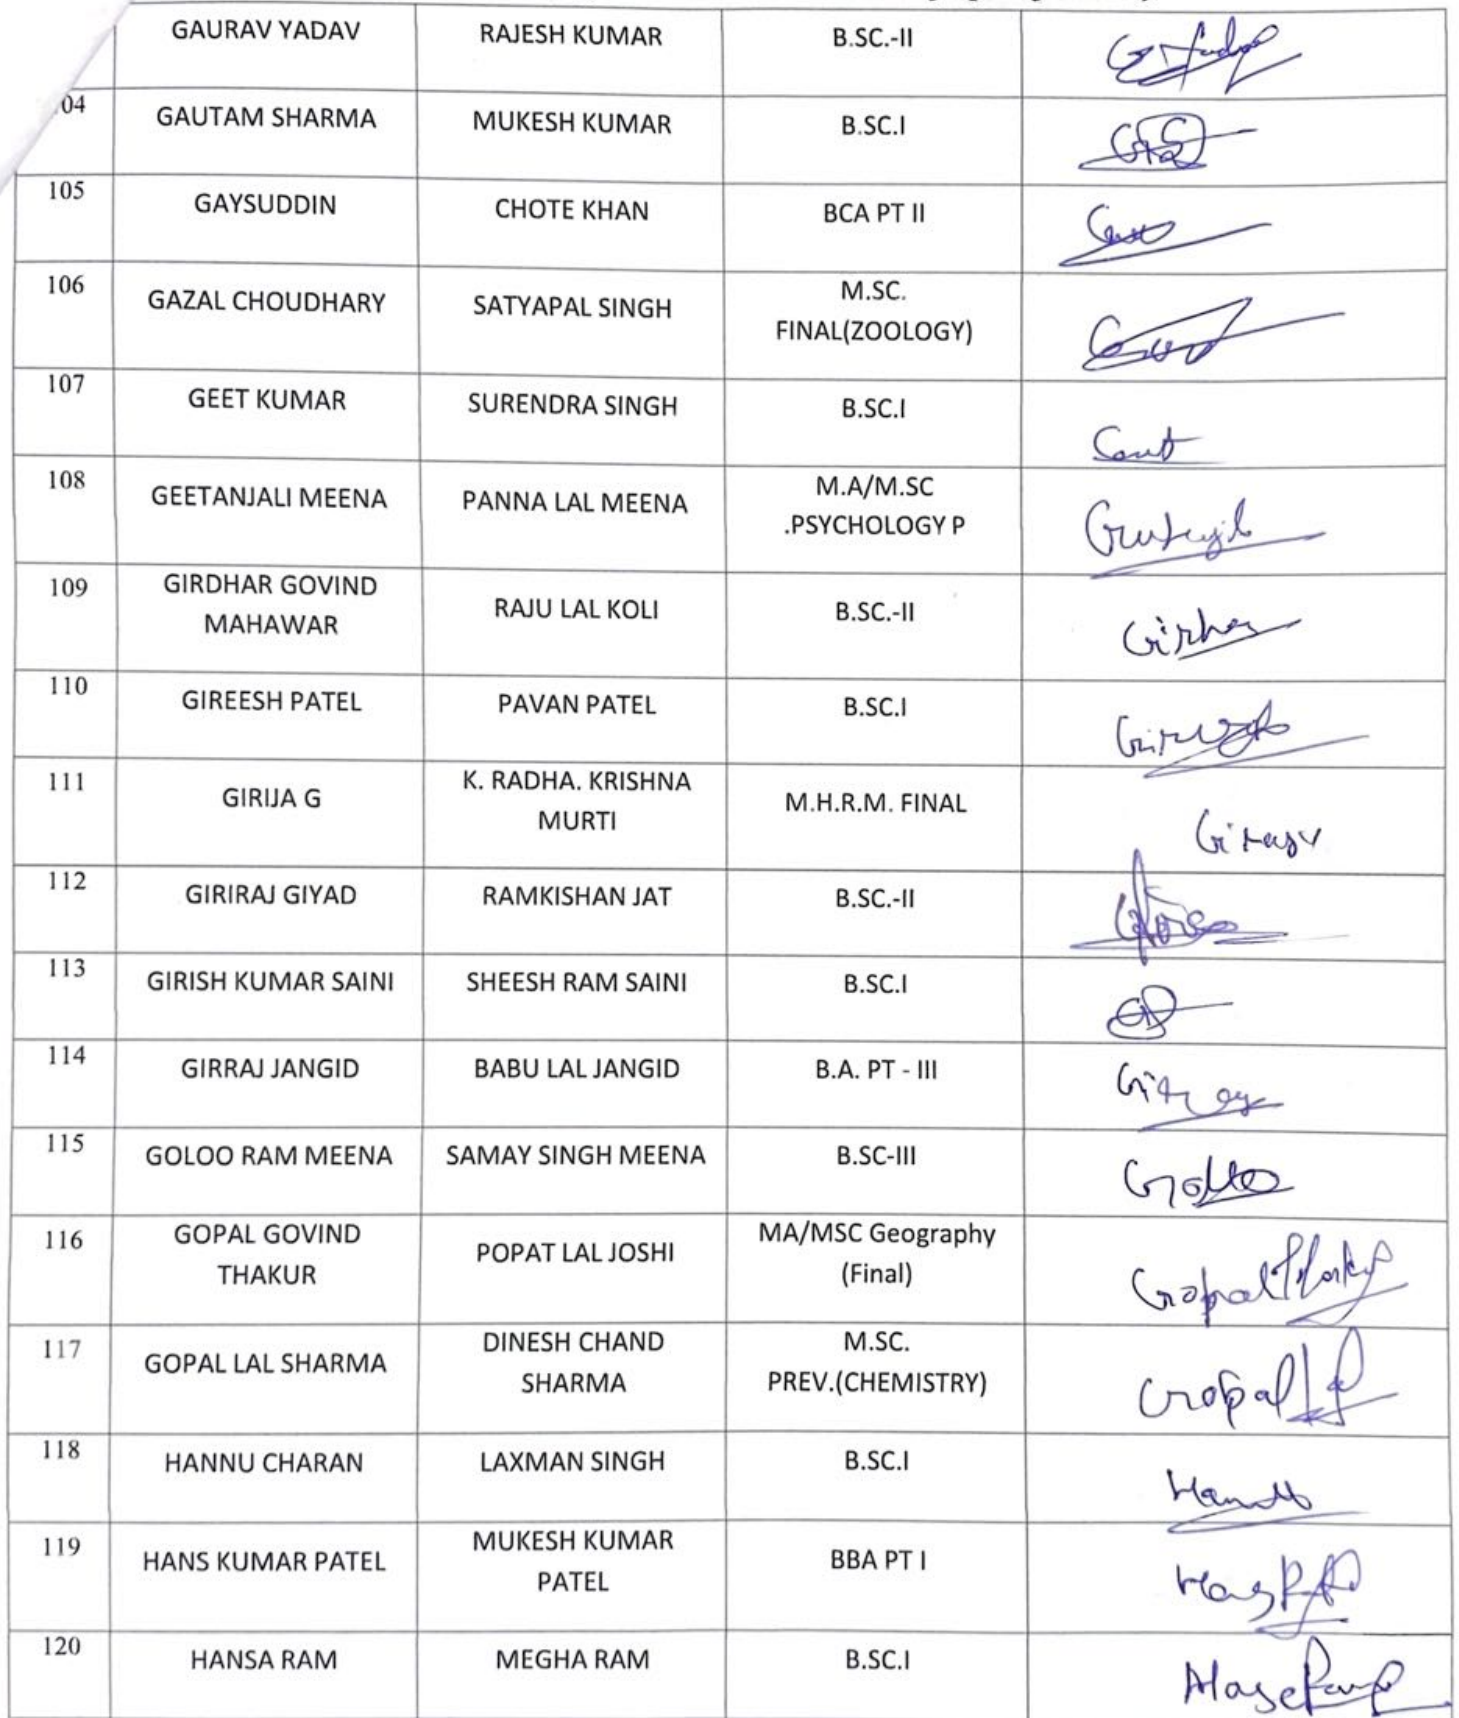 GAURAV YADAV RAJESH KUMAR B.SC.-II
04 GAUTAM SHARMA MUKESH KUMAR B.SC.I
105 GAYSUDDIN CHOTE KHAN BCA PT II
106 GAZAL CHOUDHARY SATYAPAL SINGH M.SC.
FINAL(ZOOLOGY)
107 GEET KUMAR SURENDRA SINGH B.SC.I
108 GEETANJALI MEENA PANNA LAL MEENA M.A/M.SC
.PSYCHOLOGY P
109 GIRDHAR GOVIND
MAHAWAR RAJU LAL KOLI B.SC.-II
110 GIREESH PATEL PAVAN PATEL B.SC.I
111 GIRIJA G K. RADHA. KRISHNA
MURTI M.H.R.M. FINAL
112 GIRIRAJ GIYAD RAMKISHAN JAT B.SC.-II
113 GIRISH KUMAR SAINI SHEESH RAM SAINI B.SC.I
114 GIRRAJ JANGID BABU LAL JANGID B.A. PT - III
115 GOLOO RAM MEENA SAMAY SINGH MEENA B.SC-III
116 GOPAL GOVIND
THAKUR POPAT LAL JOSHI MA/MSC Geography
(Final) Gopal
117 GOPAL LAL SHARMA DINESH CHAND
SHARMA M.SC.
PREV.(CHEMISTRY) Gopal
118 HANNU CHARAN LAXMAN SINGH B.SC.I
119 HANS KUMAR PATEL MUKESH KUMAR
PATEL BBA PT I
120 HANSA RAM MEGHA RAM B.SC.I